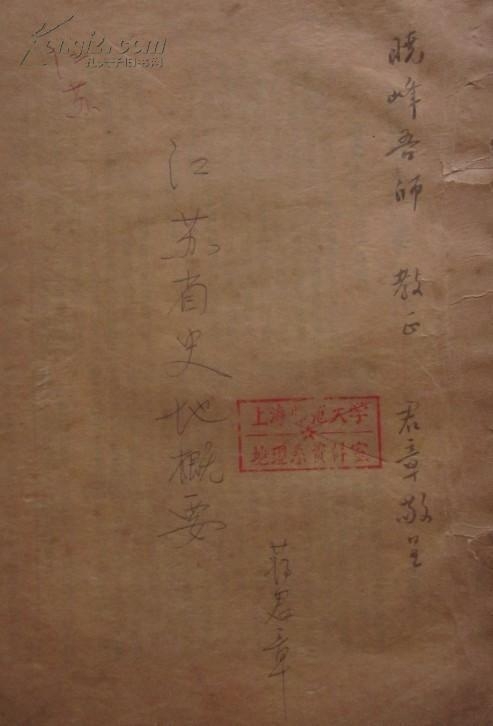 晓峰吾师 教正 君章敬呈
江苏省史地概要
蒋君章
上海师范大学
地理系资料室
江苏
Kongfz.com
孔夫子旧书网